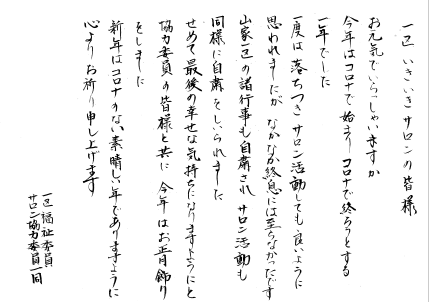 一区 いきいきサロンの皆様
お元気でいらっしゃいますか
今年はコロナで始まりコロナで終ろうとする
一年でした
一度は落ちつきサロン活動しても良いように
思われましたが なかなか終息には至らなかったです
山家一区の諸行事も自粛され サロン活動も
同様に自粛をしいられました
せめて最後の幸せな気持ちになりますようにと
協力委員の皆様と共に 今年はお正月飾り
をしました
新年はコロナのない素晴しい年でありますように
心よりお祈り申し上げます
一区福祉委員
サロン協力委員一同